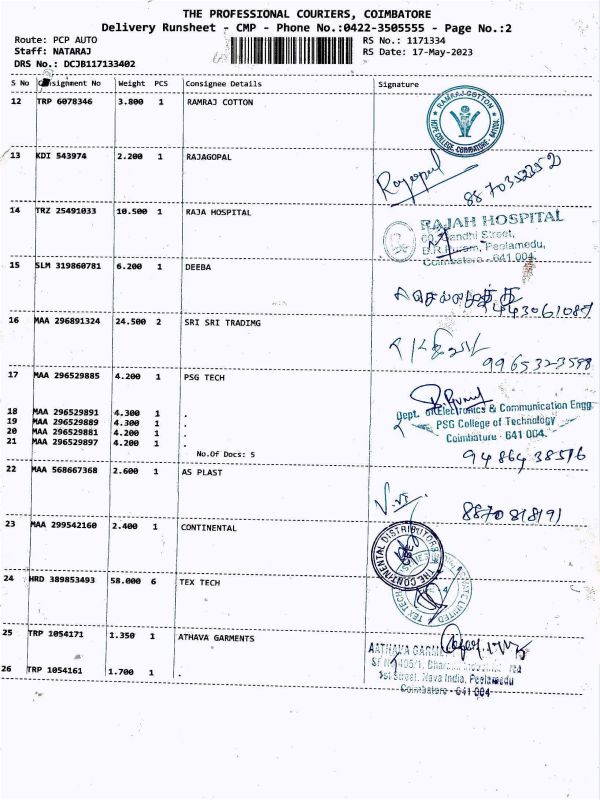 THE PROFESSIONAL COURIERS, COIMBATORE
Delivery Runsheet - CMP - Phone No.:0422-3505555 - Page No.:2
Route: PCP AUTO RS No.: 1171334
Staff: NATARAJ RS Date: 17-May-2023
DRS No.: DCJB117133402
S No Consignment No Weight PCS Consignee Details Signature
12 TRP 6078346 3.800 1 RAMRAJ COTTON
RAMRAJ COTTON
HOPE COLLEGE, COIMBATORE
13 KDI 543974 2.200 1 RAJAGOPAL
Rajagopal
8870352352
14 TRZ 25491033 10.500 1 RAJA HOSPITAL
RAJAH HOSPITAL
Gandhi Street,
B.R.Puram, Peelamedu,
Coimbatore - 641 004.
15 SLM 319860781 6.200 1 DEEBA
9443061087
16 MAA 296891324 24.500 2 SRI SRI TRADIMG
9965323598
17 MAA 296529885 4.200 1 PSG TECH
18 MAA 296529891 4.300 1 .
19 MAA 296529889 4.300 1 .
20 MAA 296529881 4.200 1 .
21 MAA 296529897 4.200 1 .
No.Of Docs: 5
Dept. of Electronics & Communication Engg.
PSG College of Technology
Coimbatore - 641 004.
9486438516
22 MAA 568667368 2.600 1 AS PLAST
8870818191
23 MAA 299542160 2.400 1 CONTINENTAL
THE CONTINENTAL DISTRIBUTORS
24 HRD 389853493 58.000 6 TEX TECH
TEX TECH LIMITED
25 TRP 1054171 1.350 1 ATHAVA GARMENTS
26 TRP 1054161 1.700 1 .
AATHAVA GARME
1st Street, Nava India, Peelamedu
Coimbatore - 641 004